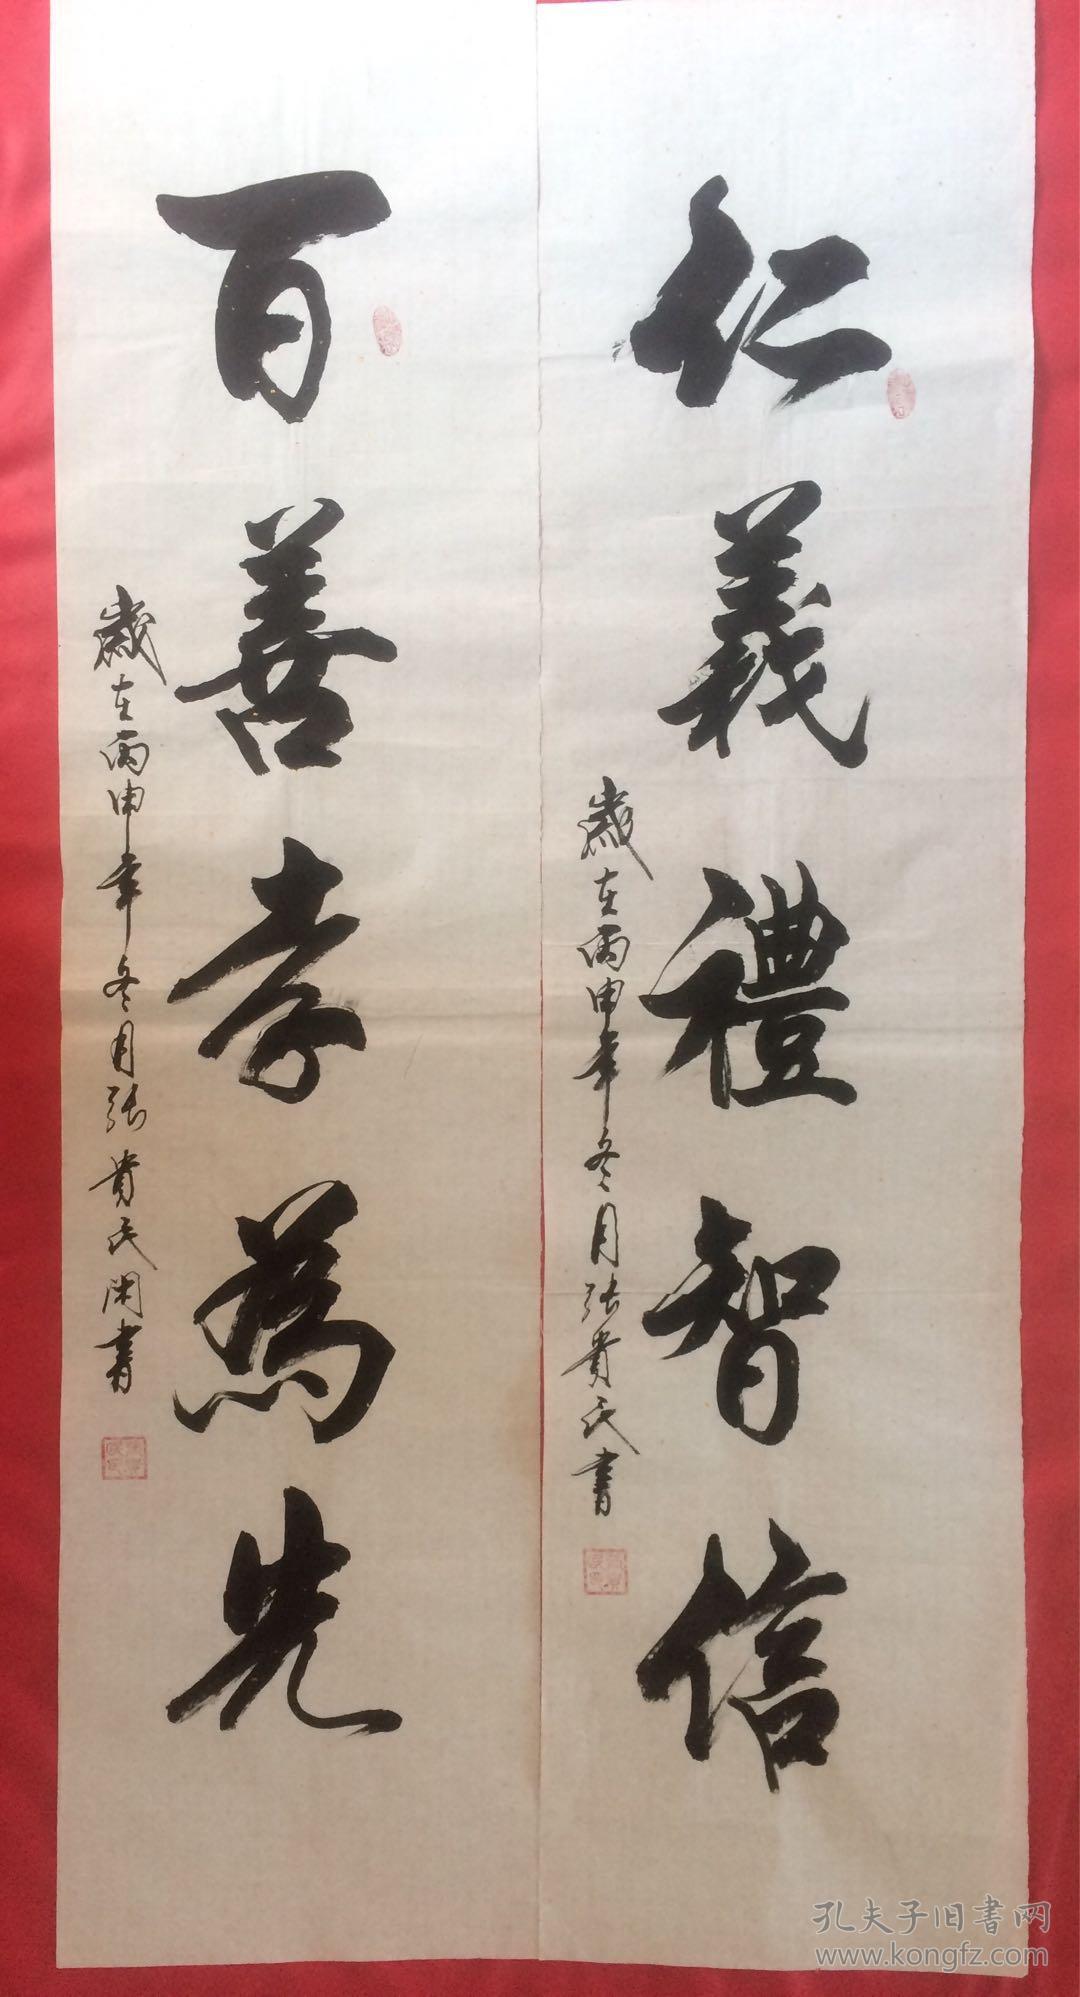 仁義禮智信
歲在丙申年冬月張貴民書
百善孝為先
歲在丙申年冬月張貴民閑書
孔夫子旧书网
www.kongfz.com